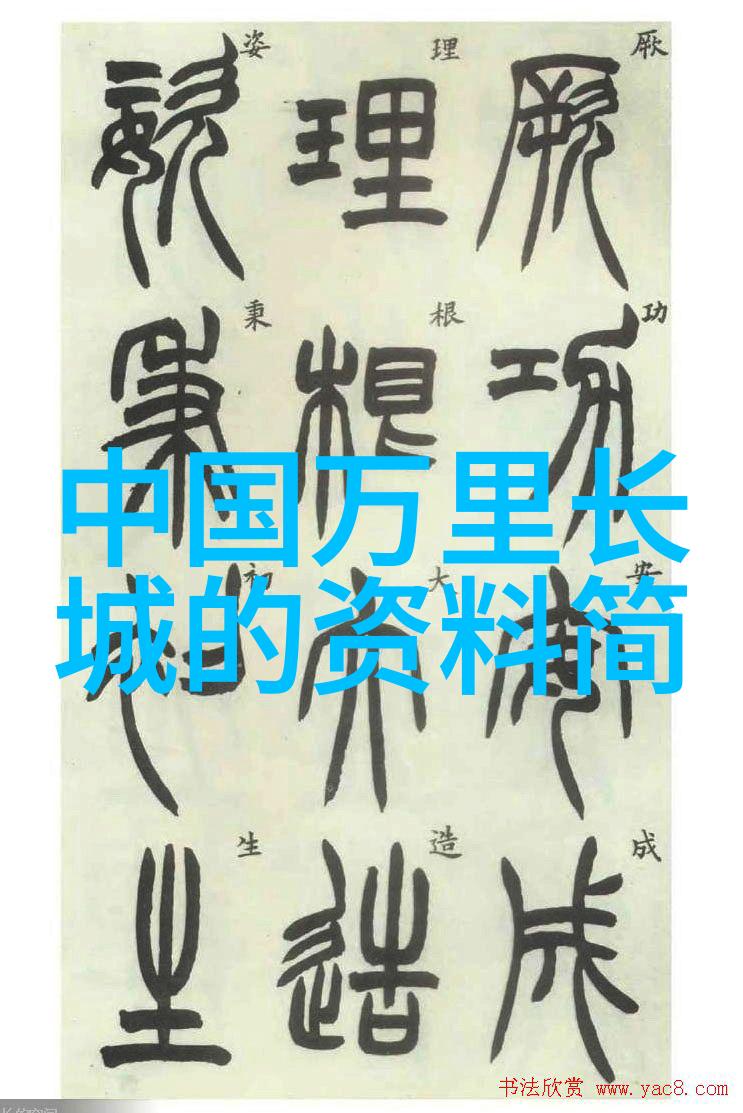 厥功安成
厥功安成
理根大造
理根大造
姿秉初生
姿秉初生
中国万里长
城的资料简
书法欣赏 www.yac8.com